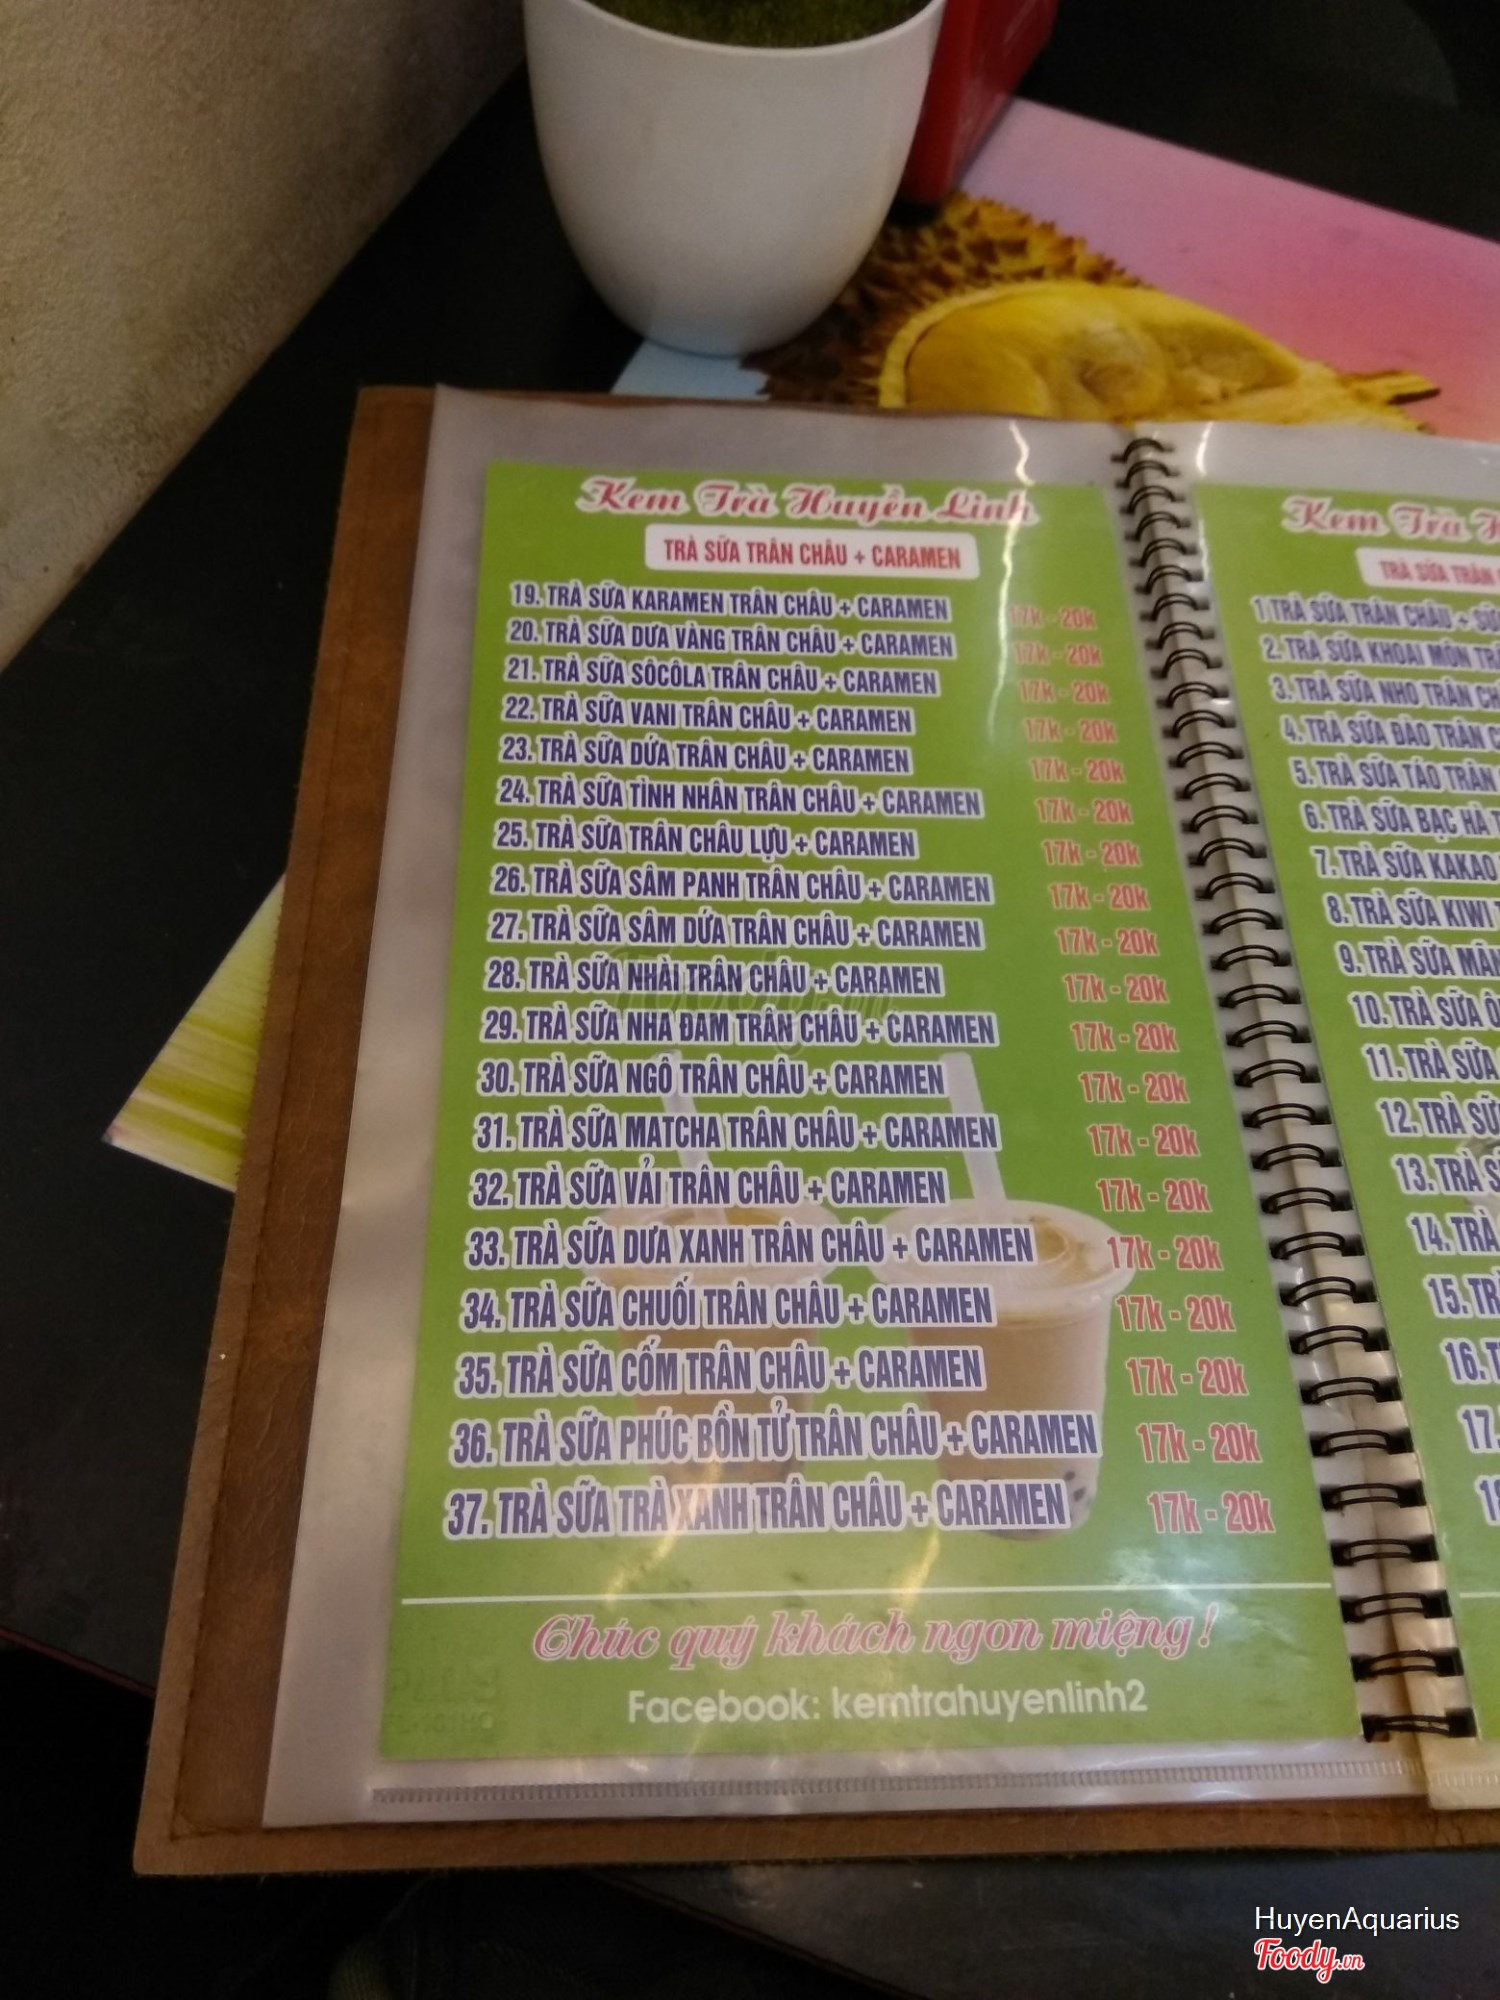 Kem Trà Huyền Linh
TRÀ SỮA TRÂN CHÂU + CARAMEN
19. TRÀ SỮA KARAMEN TRÂN CHÂU + CARAMEN 17k - 20k
20. TRÀ SỮA DƯA VÀNG TRÂN CHÂU + CARAMEN 17k - 20k
21. TRÀ SỮA SÔCÔLA TRÂN CHÂU + CARAMEN 17k - 20k
22. TRÀ SỮA VANI TRÂN CHÂU + CARAMEN 17k - 20k
23. TRÀ SỮA DỨA TRÂN CHÂU + CARAMEN 17k - 20k
24. TRÀ SỮA TÌNH NHÂN TRÂN CHÂU + CARAMEN 17k - 20k
25. TRÀ SỮA TRÂN CHÂU LỰU + CARAMEN 17k - 20k
26. TRÀ SỮA SÂM PANH TRÂN CHÂU + CARAMEN 17k - 20k
27. TRÀ SỮA SÂM DỨA TRÂN CHÂU + CARAMEN 17k - 20k
28. TRÀ SỮA NHÀI TRÂN CHÂU + CARAMEN 17k - 20k
29. TRÀ SỮA NHA ĐAM TRÂN CHÂU + CARAMEN 17k - 20k
30. TRÀ SỮA NGÔ TRÂN CHÂU + CARAMEN 17k - 20k
31. TRÀ SỮA MATCHA TRÂN CHÂU + CARAMEN 17k - 20k
32. TRÀ SỮA VẢI TRÂN CHÂU + CARAMEN 17k - 20k
33. TRÀ SỮA DƯA XANH TRÂN CHÂU + CARAMEN 17k - 20k
34. TRÀ SỮA CHUỐI TRÂN CHÂU + CARAMEN 17k - 20k
35. TRÀ SỮA CỐM TRÂN CHÂU + CARAMEN 17k - 20k
36. TRÀ SỮA PHÚC BỒN TỬ TRÂN CHÂU + CARAMEN 17k - 20k
37. TRÀ SỮA TRÀ XANH TRÂN CHÂU + CARAMEN 17k - 20k
Chúc quý khách ngon miệng!
Facebook: kemtrahuyenlinh2
Kem Trà
TRÀ SỮA TRÂN
1 TRÀ SỮA TRÂN CHÂU +
2. TRÀ SỮA KHOAI MÔN
3. TRÀ SỮA NHO TRÂN
4. TRÀ SỮA ĐÀO TRÂN
5. TRÀ SỮA TÁO TRÂN
6. TRÀ SỮA BẠC HÀ
7. TRÀ SỮA KAKAO
8. TRÀ SỮA KIWI
9. TRÀ SỮA
10. TRÀ SỮA
11. TRÀ SỮA
12. TRÀ SỮ
13. TRÀ
14. TRÀ
15.
16.
17.
HuyenAquarius
Foody.vn